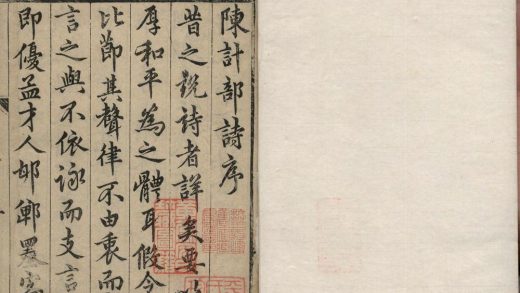 陳計部詩序
昔之説詩者詳矣要
厚和平為之體耳假今
比節其聲律不由衷而
言之與不依詠而支言
即優孟才人邯鄲